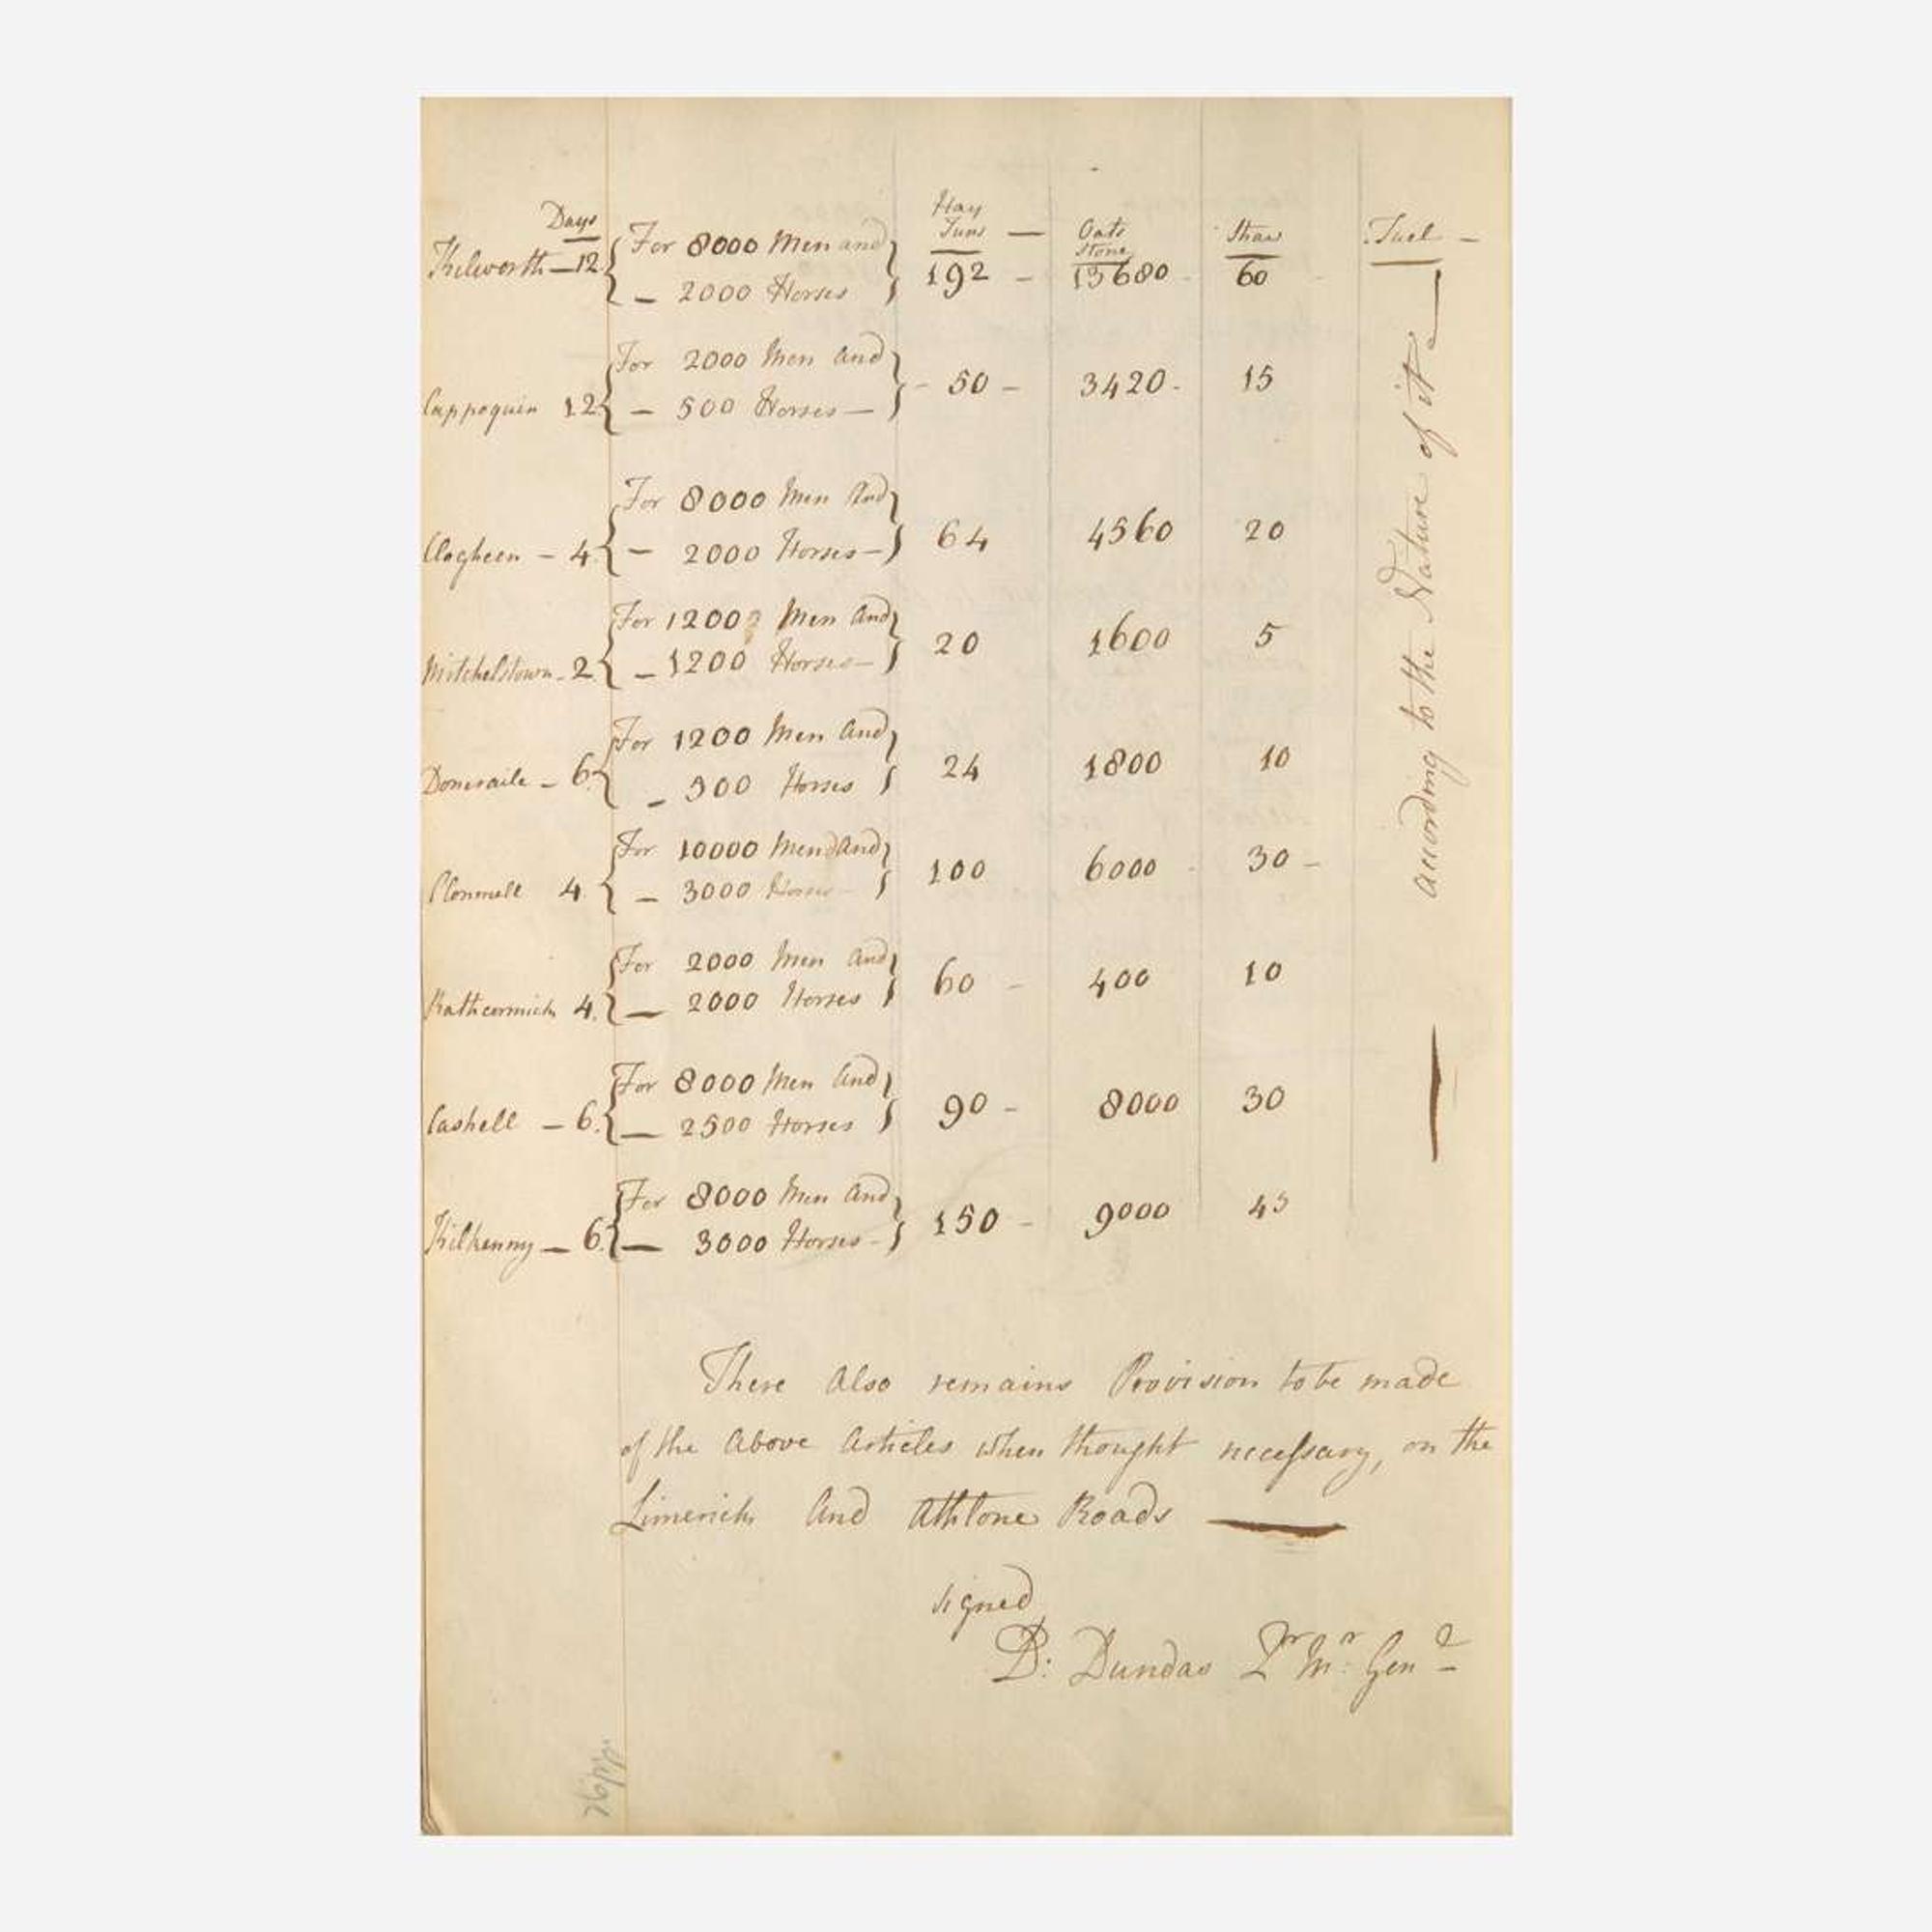 Days
Hay
Tuns — Oats Stone Straw Fuel —
Kilworth — 12 { For 8000 Men and } 192 — 13680 - 60
— 2000 Horses
For 2000 Men and
Cappoquin 12 { — 500 Horses — } - 50 — 3420 - 15
For 8000 Men And
Clogheen — 4 { — 2000 Horses — } 64 4560 20
For 1200 Men And
Mitchelstown - 2 { — 1200 Horses — } 20 1600 5
For 1200 Men And
Doneraile — 6 { — 300 Horses } 24 1800 10
For 10000 Men And
Clonmell 4 { — 3000 Horses — } 100 6000 - 30 -
For 2000 Men And
Rathcormick 4. { — 2000 Horses } 60 - 400 10
For 8000 Men And
Cashell — 6. { — 2500 Horses } 90 - 8000 30
For 8000 Men And
Kilkenny — 6. { — 3000 Horses - } 150 - 9000 45
according to the Nature of it —
There Also remains Provision to be made
of the Above Articles when thought necessary, on the
Limerick And Athlone Roads —
signed
D: Dundas Qr Mr: Genl